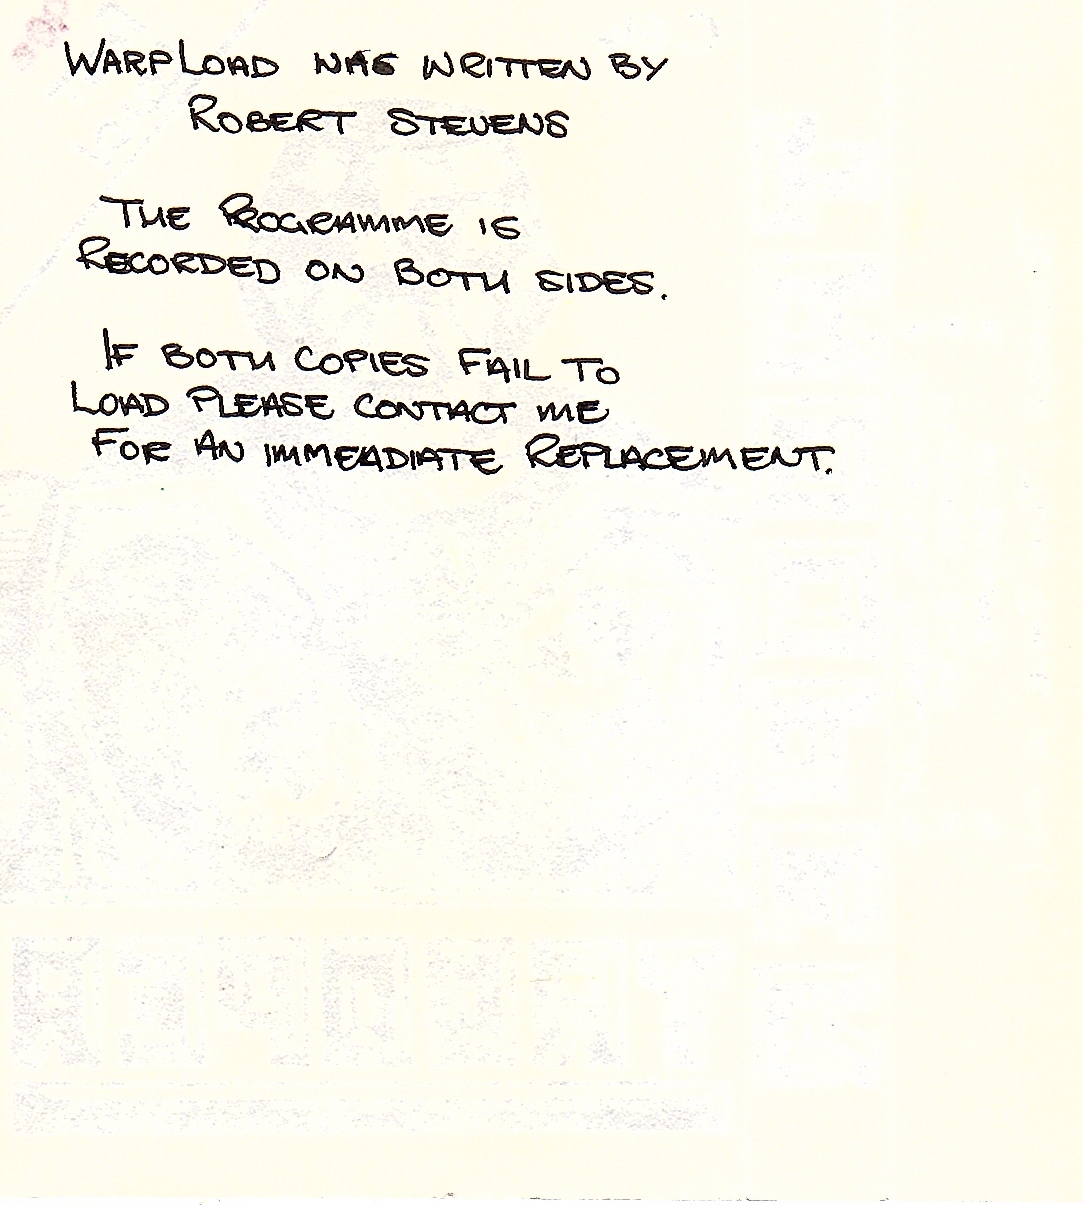 WARPLOAD WAS WRITTEN BY
ROBERT STEVENS
THE PROGRAMME IS
RECORDED ON BOTH SIDES.
IF BOTH COPIES FAIL TO
LOAD PLEASE CONTACT ME
FOR AN IMMEADIATE REPLACEMENT.